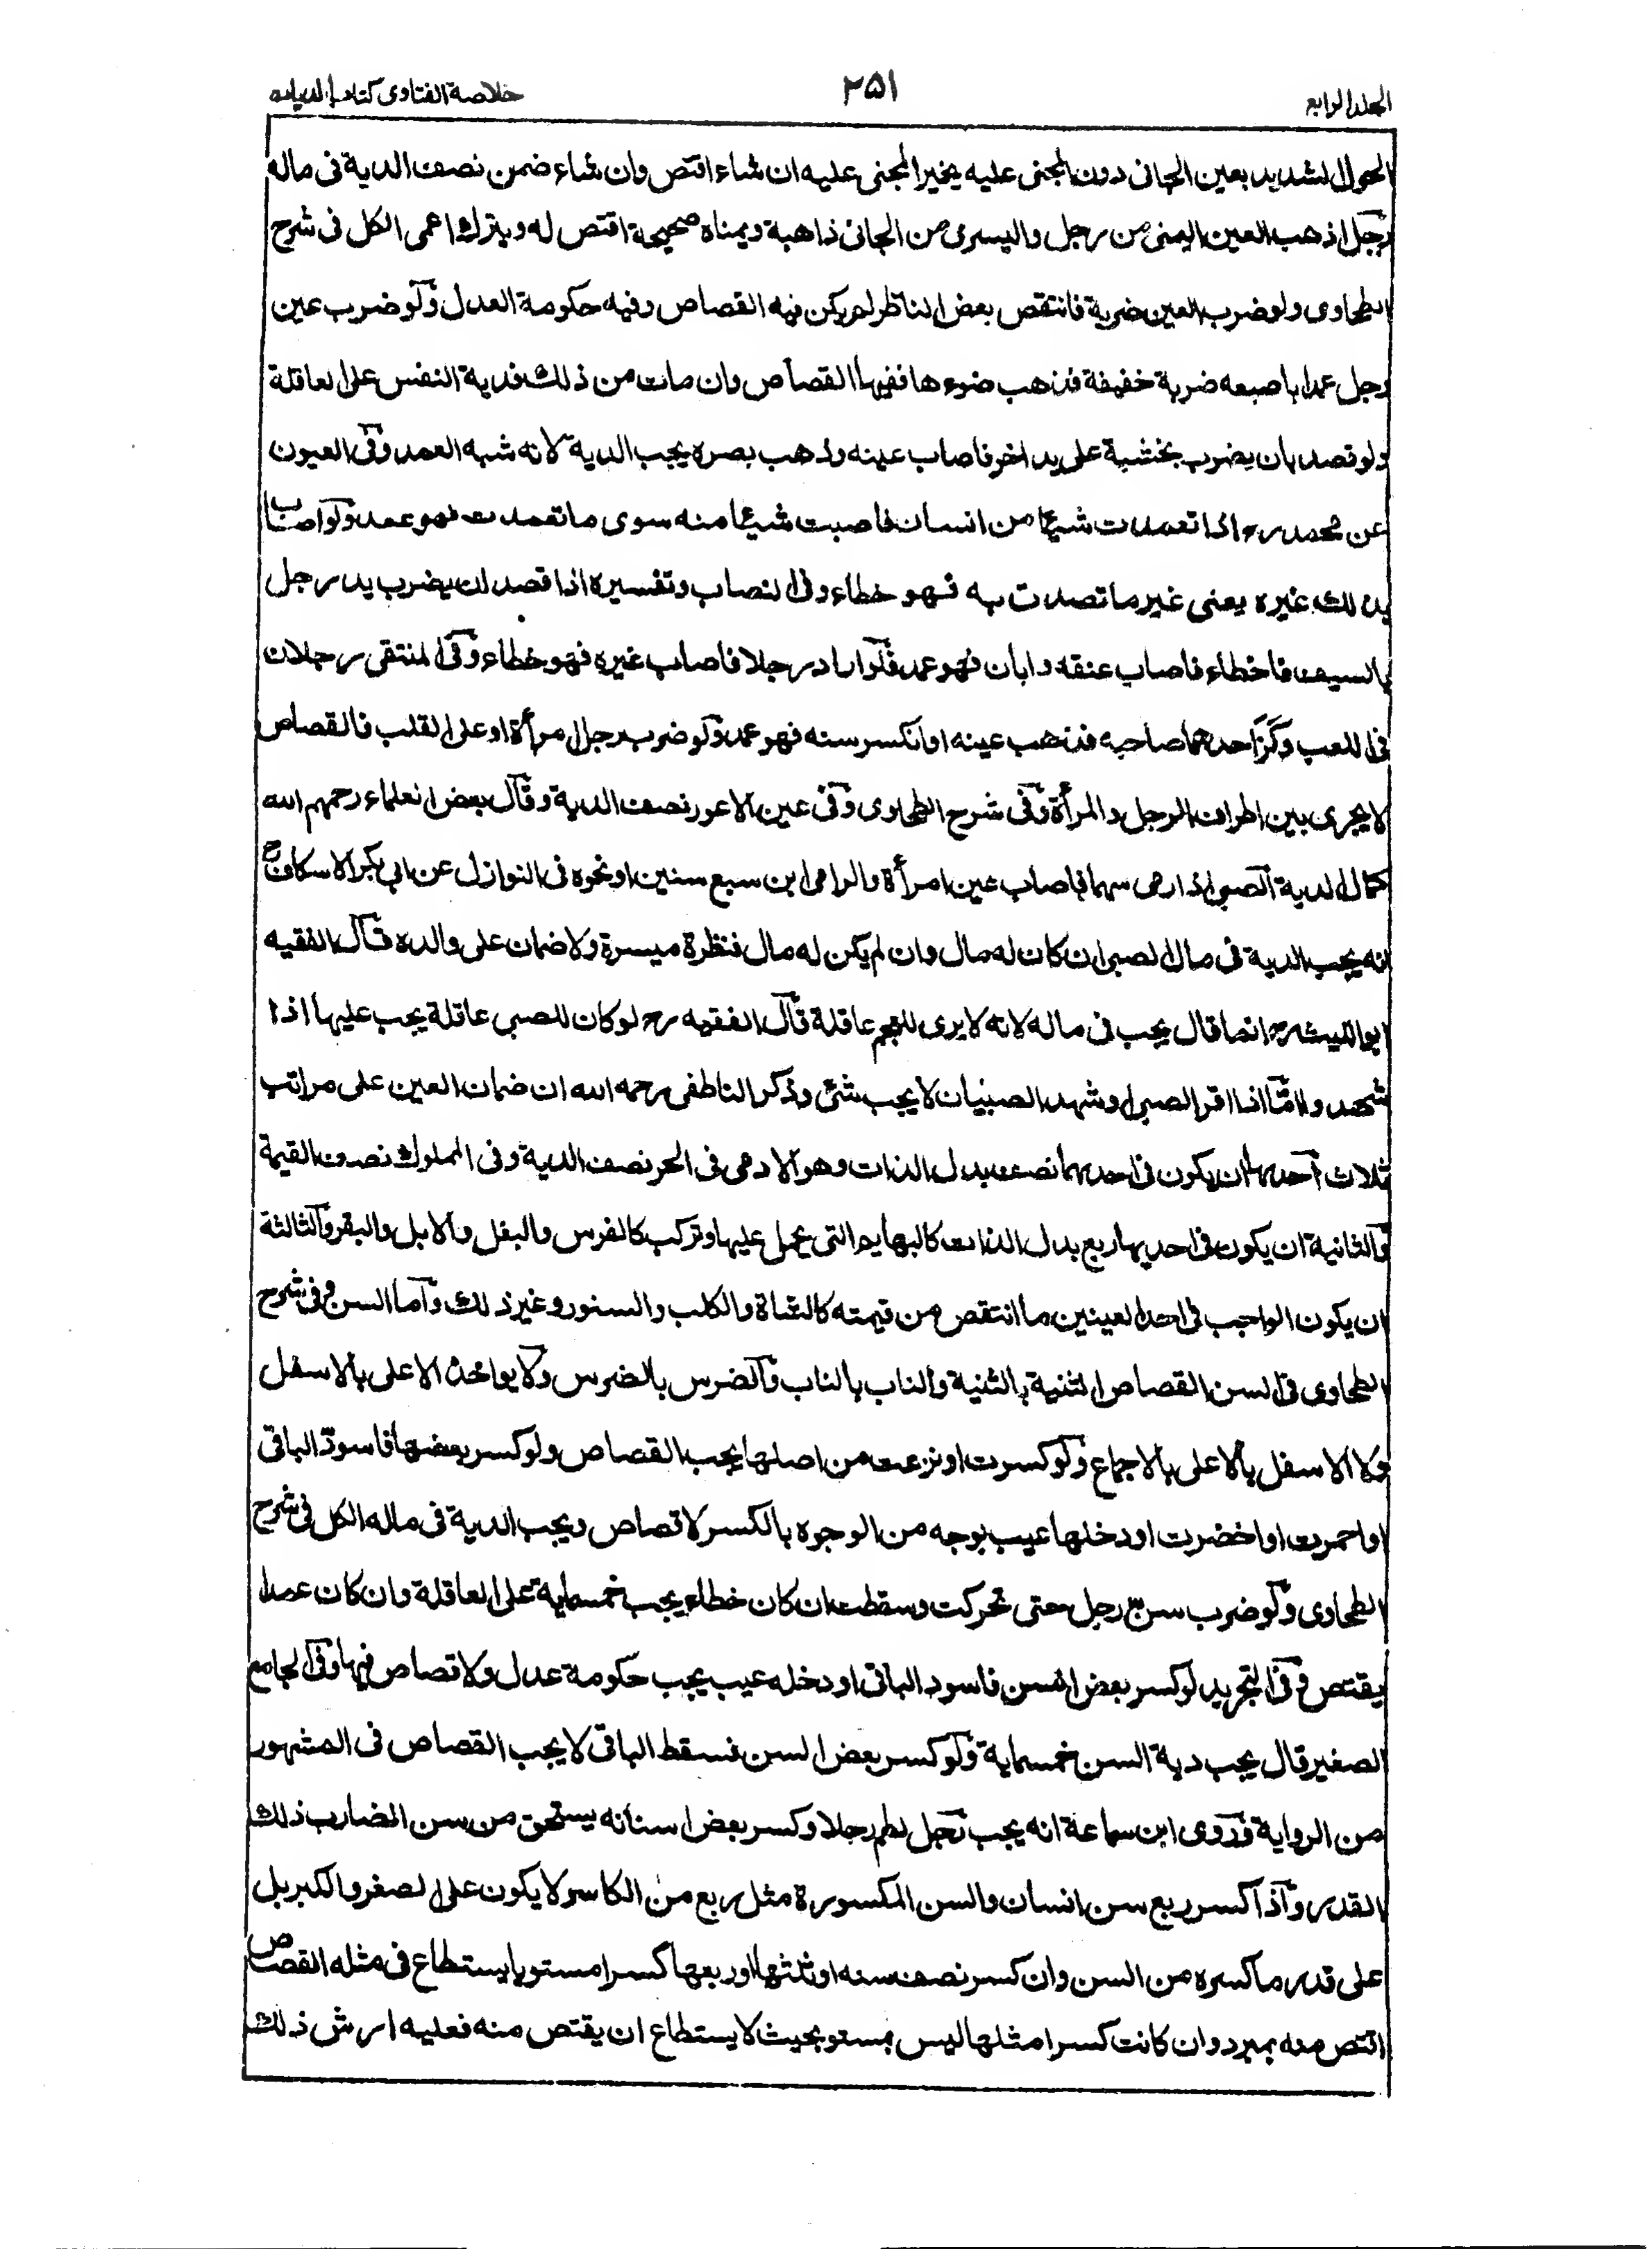 الجلد الرابع
٢٥١
خلاصة الفتاوى كتاب الديات
الحول الشديد بعين الجانى دون المجنى عليه يخير المجنى عليه ان شاء اقتص وان شاء ضمن نصف الدية فى ماله
رجل اذهب العين اليمنى من رجل واليسرى من الجانى ذاهبة ويمناه صحيحة اقتص له ويترك اعمى الكل فى شرح
الطحاوى ولو ضرب العين ضربة فانتقص بعض الناظر لم يكن فيه القصاص وفيه حكومة العدل ولو ضرب عين
رجل عمدا باصبعه ضربة خفيفة فذهب ضوءها ففيها القصاص وان مات من ذلك فدية النفس على العاقلة
ولو قصد بان يضرب بخشبة على يد اخر فاصاب عينه وذهب بصره يجب الدية لانه شبه العمد وفى العيون
عن محمد رح اذا تعمدت شيئا من انسان فاصبت شيئا منه سوى ما تعمدت فهو عمد ولو اصاب
بذلك غيره يعنى غير ما تصدت به فهو خطاء وفى النصاب وتفسيره اذا قصد ان يضرب يد رجل
بالسيف فاخطاء فاصاب عنقه وابان فهو عمد فلو اراد رجلا فاصاب غيره فهو خطاء وفى المنتقى رجلان
فى اللعب وكز احدهما صاحبه فذهب عينه او انكسر سنه فهو عمد ولو ضرب رجل امرأة او على القلب فالقصاص
لا يجرى بين اطراف الرجل والمرأة وفى شرح الطحاوى وفى عين الاعور نصف الدية وقال بعض العلماء رحمهم الله
كمال الدية الصبى اذا رمى سهما فاصاب عين امرأة والرامى ابن سبع سنين او نحوه فى النوازل عن ابى بكر الاسكاف رح
انه يجب الدية فى مال الصبى ان كان له مال وان لم يكن له مال فنظرة ميسرة ولا ضمان على والده قال الفقيه
ابو الليث رح انما قال يجب فى ماله لانه لا يرى للعجم عاقلة قال الفقيه رح لو كان للصبى عاقلة يجب عليها اذا
شهد واما اذا اقر الصبى او شهد الصبيان لا يجب شئ وذكر الناطفى رحمه الله ان ضمان العين على مراتب
ثلاث احدها ان يكون فى احديهما نصف بدل الذات وهو الادمى فى الحر نصف الدية وفى المملوك نصف القيمة
والثانية ان يكون فى احديها ربع بدل الذات كالبهايم التى يحمل عليها وتركب كالفرس والبغل والابل والبقر والثالثة
ان يكون الواجب فى احد العينين ما انتقص من قيمته كالشاة والكلب والسنور وغير ذلك واما السن وفى شرح
الطحاوى فى السن القصاص الثنية بالثنية والناب بالناب والضرس بالضرس ولا يواخذ الاعلى بالاسفل
ولا الاسفل بالاعلى بالاجماع ولو كسرت او نزعت من اصلها يجب القصاص ولو كسر بعضها فاسود الباقى
او احمرت او اخضرت او دخلها عيب بوجه من الوجوه بالكسر لا قصاص ويجب الدية فى ماله الكل فى شرح
الطحاوى ولو ضرب سن رجل حتى تحركت وسقطت ان كان خطاء يجب خمسماية على العاقلة وان كان عمدا
يقتص وفى التجريد لو كسر بعض السن فاسود الباقى او دخله عيب يجب حكومة عدل ولا قصاص فيها وفى الجامع
الصغير قال يجب دية السن خمسماية ولو كسر بعض السن فسقط الباقى لا يجب القصاص فى المشهور
من الرواية وروى ابن سماعة انه يجب رجل لطم رجلا وكسر بعض اسنانه يستحق من سن الضارب ذلك
القدر واذا كسر ربع سن انسان والسن المكسورة مثل ربع من الكاسر لا يكون على الصغر والكبر بل
على قدر ما كسره من السن وان كسر نصف سنه او ثلثها او ربعها كسرا مستويا يستطاع فى مثله القصاص
اقتص منه بمبرد وان كانت كسرا مثلها ليس بمستو بحيث لا يستطاع ان يقتص منه فعليه ارش ذلك